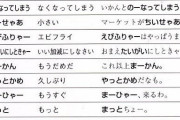 なってしまう なくなってしまう いかんとのーなってしまう
ーせゃあ 小さい マーケットがちいせゃあ
びふりゃー エビフライ えびふりゃーはやっぱうま
いい加減にしなさい
ーかん もうだめだ これ以上まーかん。
っとかめ 久しぶり やっとかめだなも。
ーひゃー もうすぐ まーひゃー
っと もっと まっとちょー。